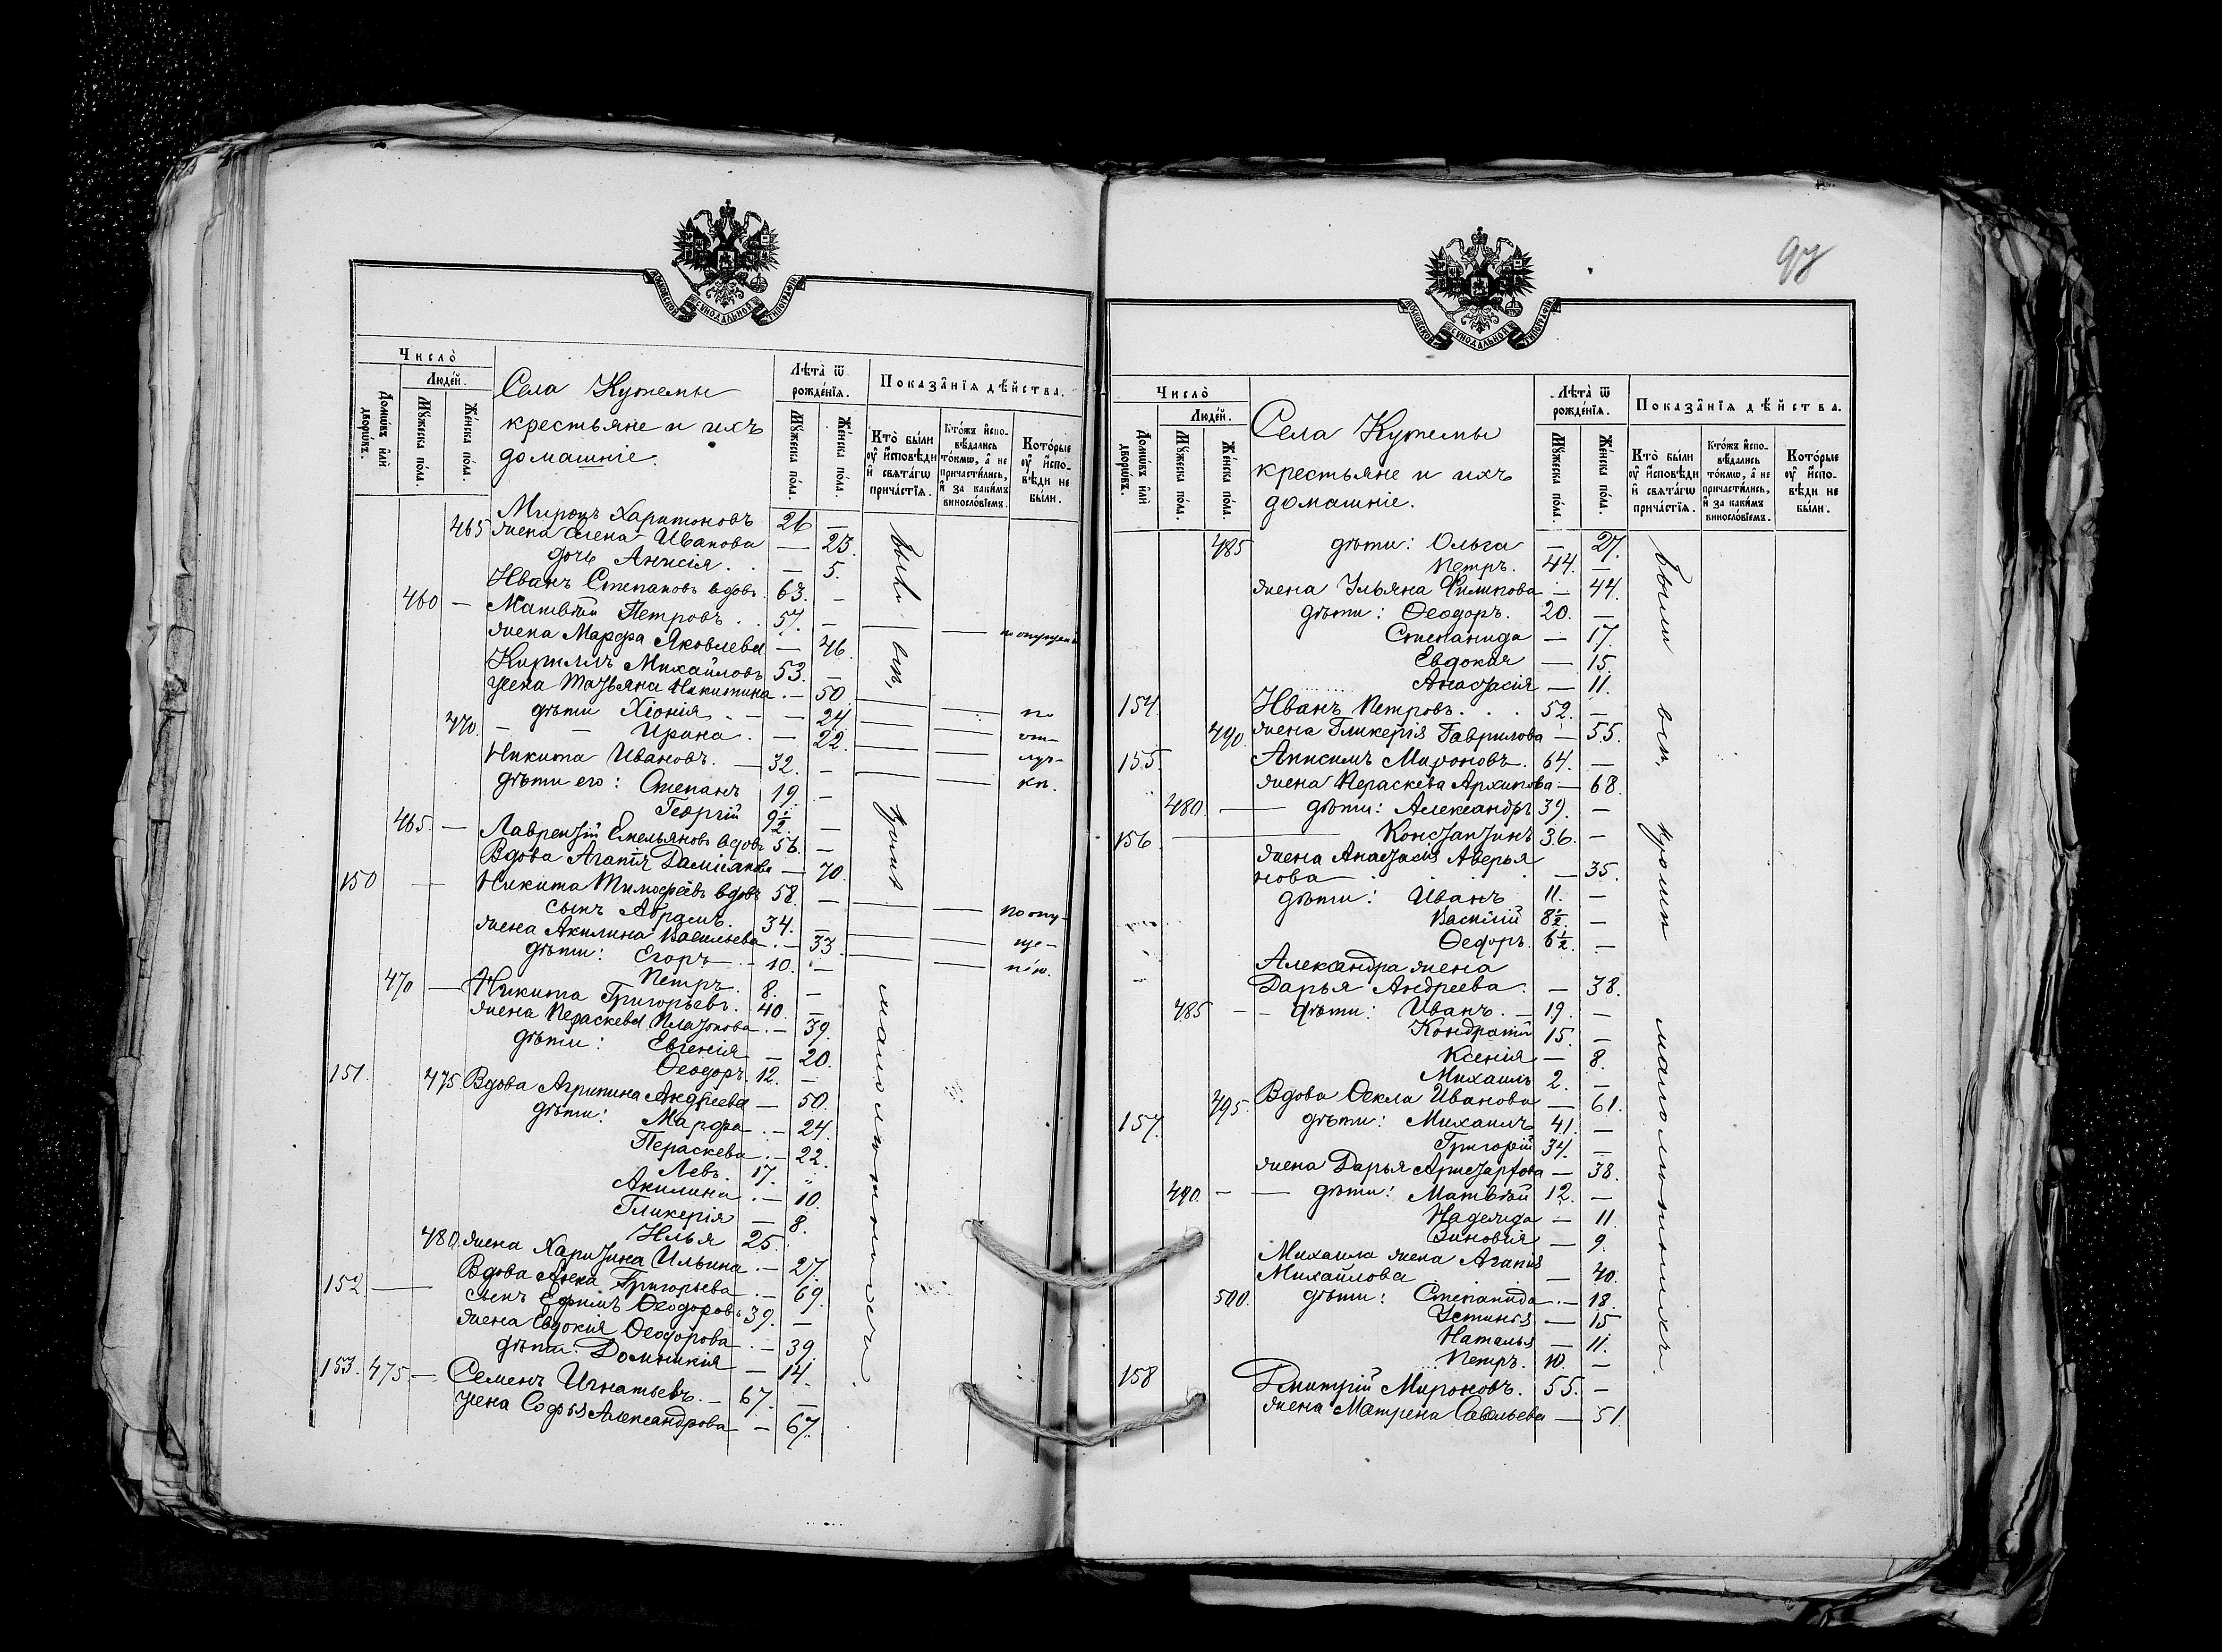 МОСКОВСКОЙ СѴНОДАЛЬНОЙ ТИПОГРАФІИ
Число̀
Людéй.
Домѡ́въ и҆лѝ дворѡ́въ.
Мꙋ́жеска по́ла.
Же́нска по́ла.
Села Кужемы
крестьяне и ихъ
домашніе.
Лѣ́та ѿ рожде́нїѧ.
Мꙋ́жеска по́ла.
Же́нска по́ла.
Показа̑нїѧ дѣ́йства.
Кто̀ бы́ли оу҆ и҆сповѣ́ди и҆ свѧта́гѡ прича́стїѧ.
Кто́жъ и҆сповѣ́дались то́кмѡ, а҆ не причасти́лись, и҆ за каки́мъ винословїемъ.
Кото́рые оу҆ и҆сповѣ́ди не бы́ли.
Миронъ Харитоновъ 26 —
465 жена Елена Иванова — 23.
дочь Анисія . . — 5.
Иванъ Степановъ вдовъ. 63. —
460 — Матвѣй Петровъ . . 57. —
жена Марѳа Яковлева — 46. — — по опущен
Кириллъ Михайловъ 53. —
жена Татьяна Никитина . — 50
дѣти Хіонія . — — 24 — — по
470. — — Ирина . — 22. — — от-
Никита Ивановъ. — 32. — — — луч-
дѣти его: Степанъ 19. — — — кѣ.
Георгій 9½ —
465. — Лаврентій Емельяновъ вдовъ 56. —
Вдова Агапія Даміанова — 70.
150 — Никита Тимоѳеевъ вдовъ 58. —
сынъ Абрамъ. 34. — — — по опу-
жена Акилина Васильева . — 33. — — ще-
дѣти: Егоръ — 10. — — — нію.
Петръ. 8. —
470 — Никита Григорьевъ. 40. —
жена Пераскева Платонова . — 39.
дѣти: Евгенія — 20.
Ѳеодоръ. 12. —
151. 475 Вдова Агрипина Андреева — 50.
дѣти: Марѳа . — 24.
Пераскева . — 22.
Левъ. 17. "
Акилина . — 10.
Гликерія — 8.
Илья 25.
480. жена Харитина Ильина . — 27.
152. — Вдова Анна Григорьева . — 69.
сынъ Ефимъ Ѳеодоровъ 39. —
жена Евдокія Ѳеодорова . — 39.
дѣти: Домникія — 14.
153. 475 — Семенъ Игнатьевъ. — 67. —
жена Софья Александрова — 67.
были вѣ, кромѣ малолѣтнихъ.
97
МОСКОВСКОЙ СѴНОДАЛЬНОЙ ТИПОГРАФІИ
Число̀
Людéй.
Домѡ́въ и҆лѝ дворѡ́въ.
Мꙋ́жеска по́ла.
Же́нска по́ла.
Села Кужемы
крестьяне и ихъ
домашніе.
Лѣ́та ѿ рожде́нїѧ.
Мꙋ́жеска по́ла.
Же́нска по́ла.
Показа̑нїѧ дѣ́йства.
Кто̀ бы́ли оу҆ и҆сповѣ́ди и҆ свѧта́гѡ прича́стїѧ.
Кто́жъ и҆сповѣ́дались то́кмѡ, а҆ не причасти́лись, и҆ за каки́мъ винословїемъ.
Кото́рые оу҆ и҆сповѣ́ди не бы́ли.
485 дѣти: Ольга — 27.
Петръ. 44. —
жена Ульяна Филипова — 44.
дѣти: Ѳеодоръ. 20. —
Степанида — 17.
Евдокія — 15.
Анастасія — 11.
154. Иванъ Петровъ. . . 52. —
490. жена Гликерія Гаврилова — 55.
155. Анисимъ Мироновъ. 64. —
жена Пераскева Архипова — 68.
480. — — дѣти: Александръ 39. —
156 — — Константинъ 36. —
жена Анастасія Аверья
нова — . . — 35.
дѣти: Иванъ 11. —
Василій 8½. —
Ѳеодоръ. 6½. —
Александра жена
Дарья Андреева. — 38.
485 — — дѣти: Иванъ. — 19. —
Кондратій 15. —
Ксенія — 8.
Михаилъ 2. —
495. Вдова Ѳекла Иванова — 61.
157. дѣти: Михаилъ 41. —
Григорій 34. —
жена Дарья Аристархова — 38.
490. — — дѣти: Матвѣй 12. —
Надежда — 11.
Зиновія — 9.
Михаила жена Агапія
Михайлова . . — 40.
500. дѣти: Степанида . — 18.
Устинія — 15
Наталья — 11.
Петръ. 10. —
158 Дмитрій Мироновъ. 55. —
жена Матрена Савельева — 51.
были вѣ, кромѣ малолѣтнихъ.